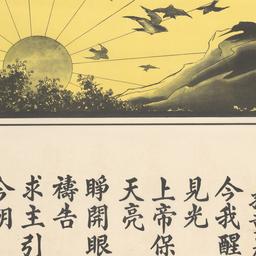 今我醒
見光
上帝保
天亮
睜開眼
禱告
求主引
今